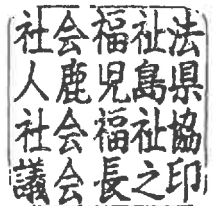 社会福祉法
人鹿児島県
社会福祉協
議会長之印